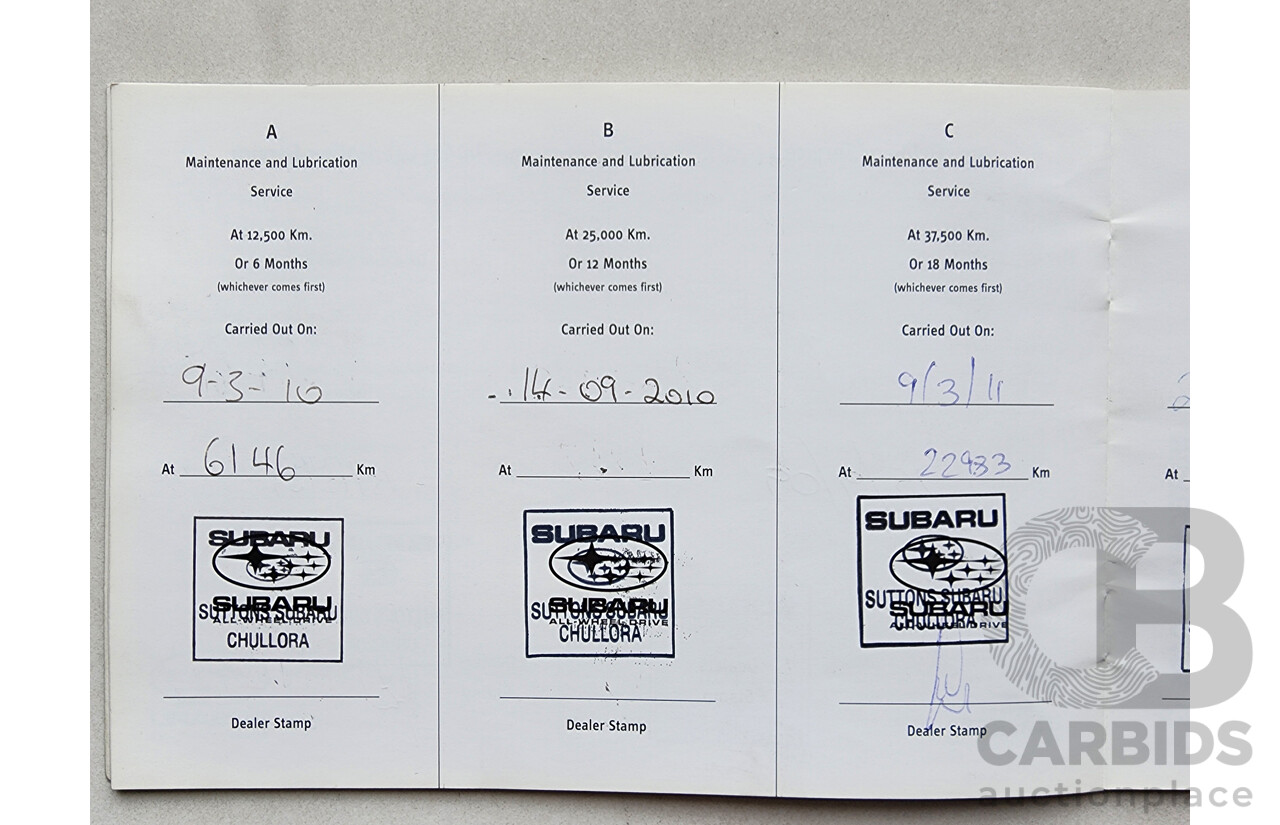 A
Maintenance and Lubrication
Service
At 12,500 Km.
Or 6 Months
(whichever comes first)
Carried Out On:
9-3-10
At 6146 Km
SUBARU
SUBARU
SUTTONS SUBARU
ALL-WHEEL DRIVE
CHULLORA
Dealer Stamp
B
Maintenance and Lubrication
Service
At 25,000 Km.
Or 12 Months
(whichever comes first)
Carried Out On:
14-09-2010
At Km
SUBARU
SUBARU
SUTTONS SUBARU
ALL-WHEEL DRIVE
CHULLORA
Dealer Stamp
C
Maintenance and Lubrication
Service
At 37,500 Km.
Or 18 Months
(whichever comes first)
Carried Out On:
9/3/11
At 22933 Km
SUBARU
SUTTONS SUBARU
SUBARU
CHULLORA
Dealer Stamp
At
CB
CARBIDS
auctionplace